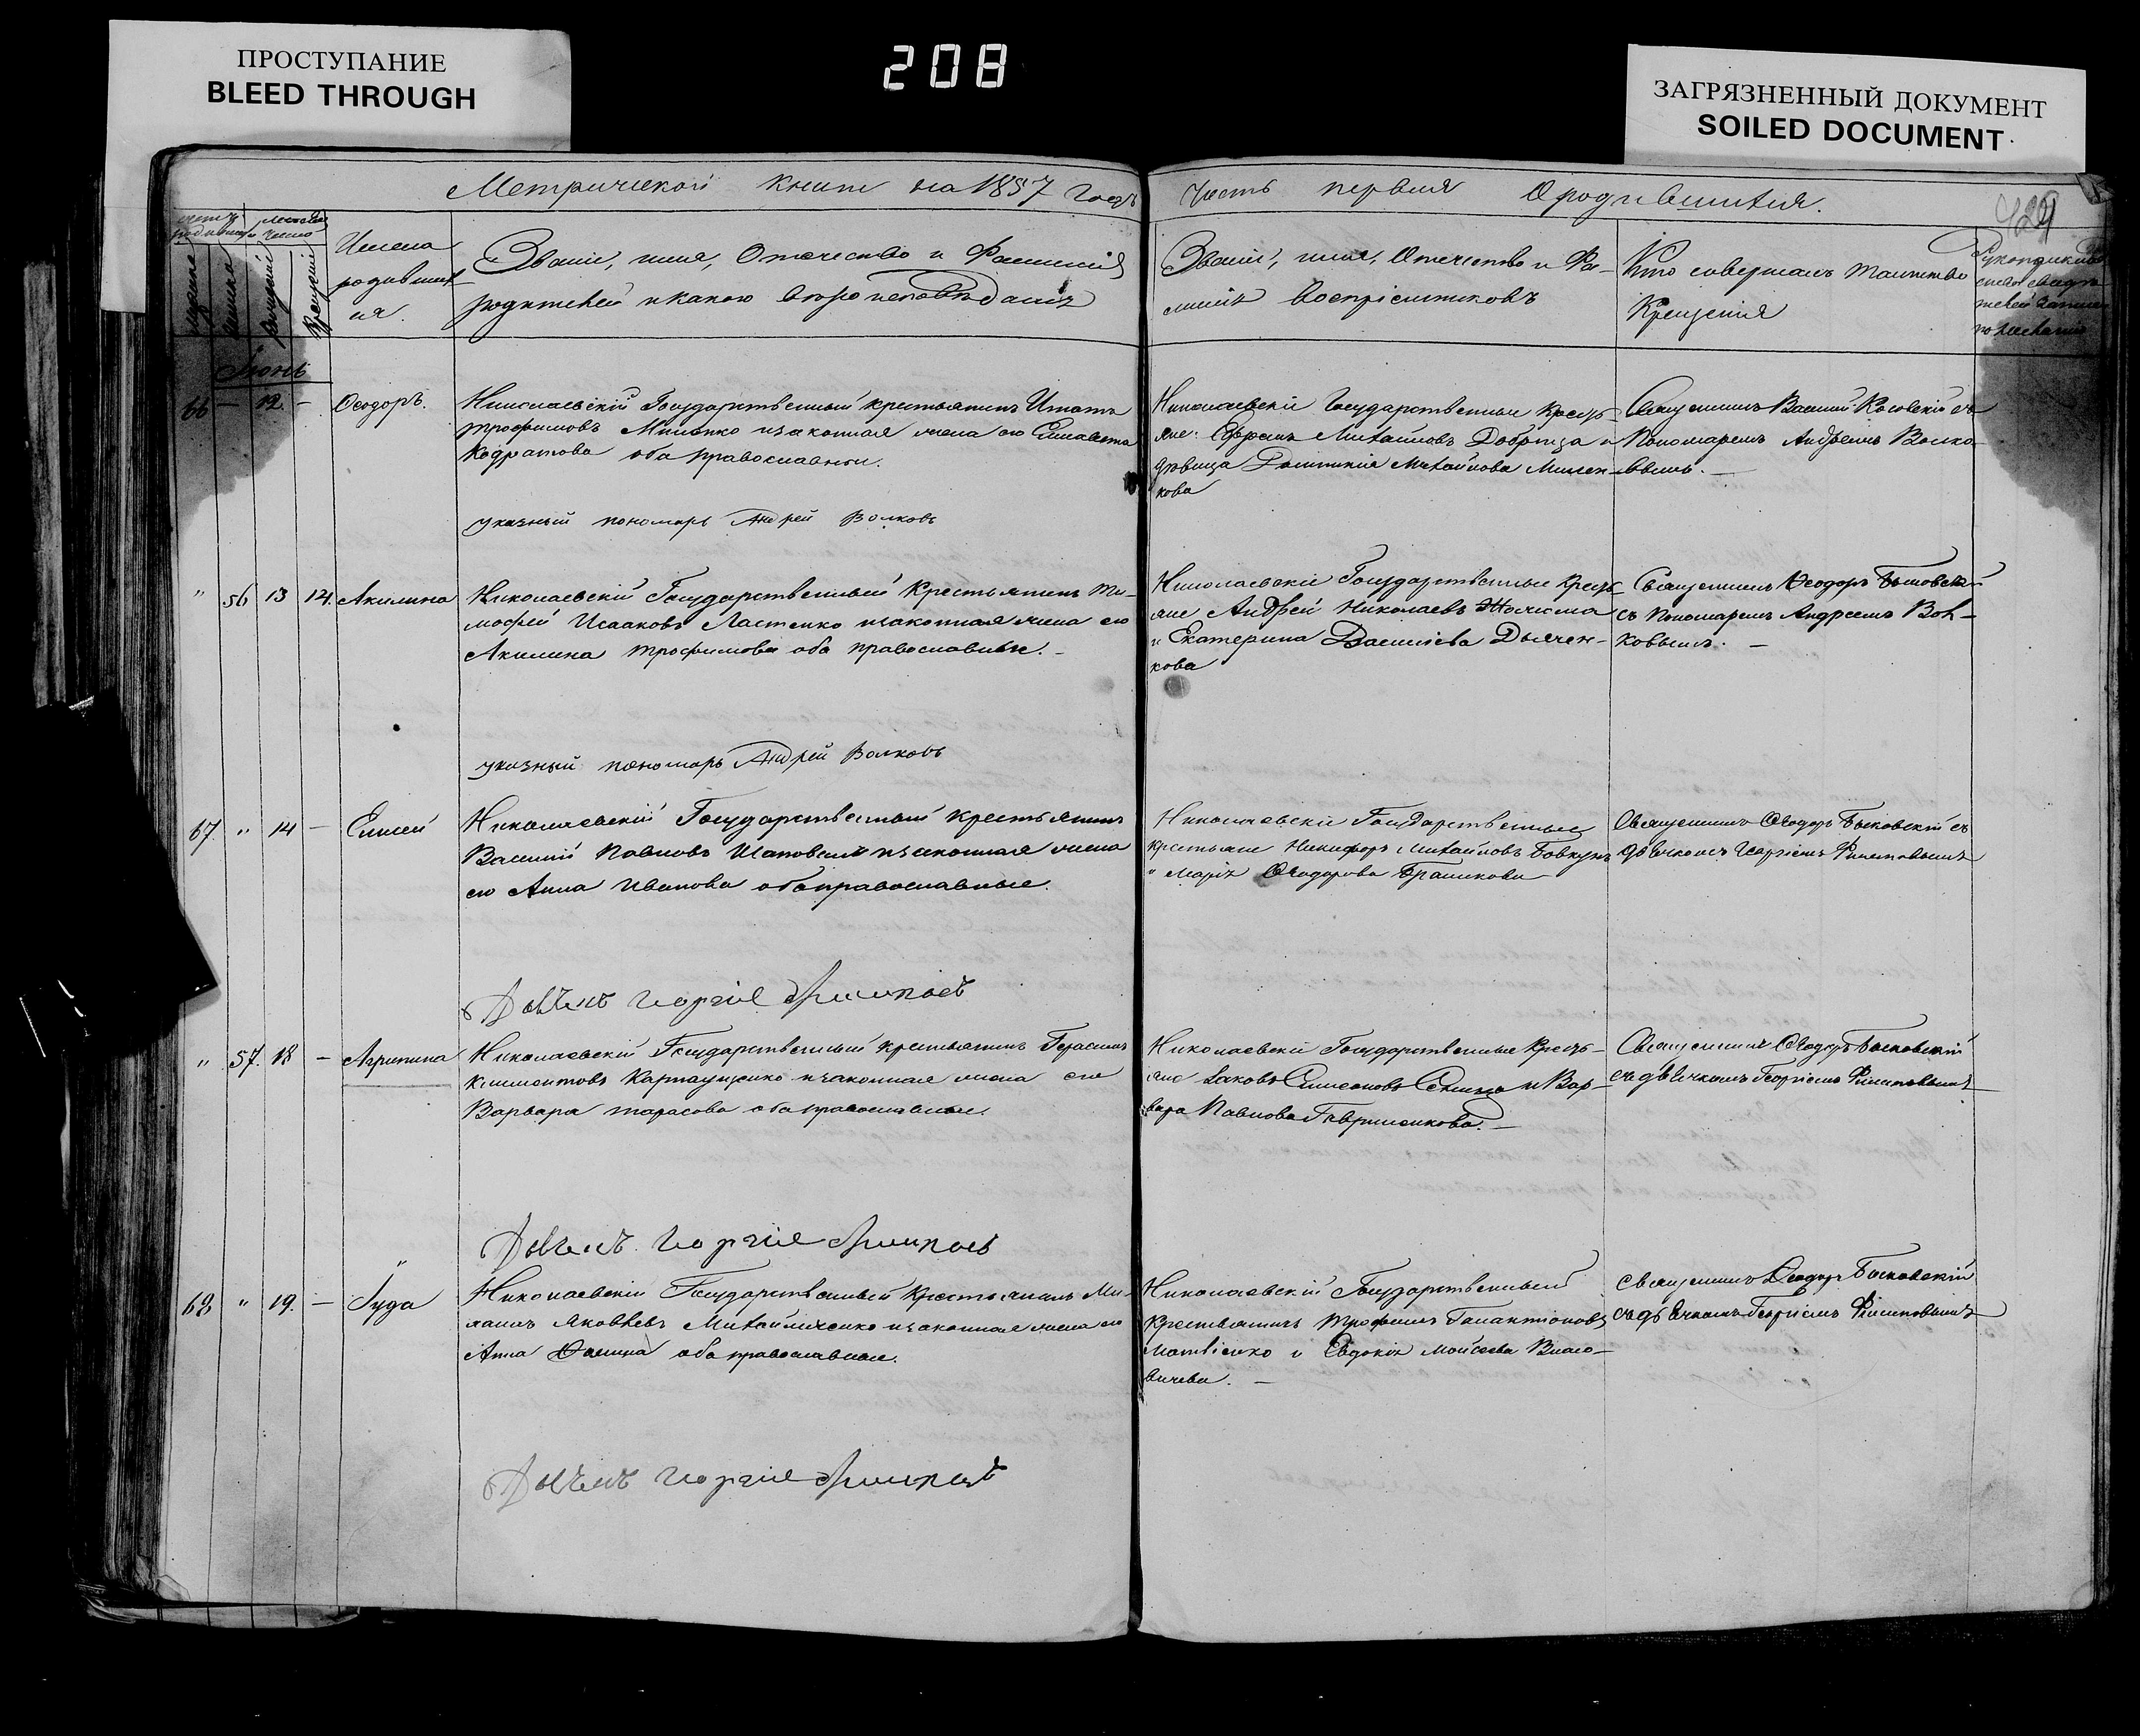 ПРОСТУПАНИЕ
BLEED THROUGH
208
ЗАГРЯЗНЕННЫЙ ДОКУМЕНТ
SOILED DOCUMENT
Метрической книги на 1857 годъ
Часть первая О родившихся.
429
Имена
родивших
ся.
Званіе, имя, Отечество и Фамилія
родителей и какого вѣроисповѣданія
Званіе, имя, Отечество и Фа-
милія Воспріемниковъ
Кто совершалъ таинство
Крещенія
Іюнь
66 — 12. — Ѳеодоръ.
Николаевскій Государственный крестьянинъ Игнатъ
Трофимовъ Миленко и законная жена его Елисавета
Кодратова оба православные.
указный пономарь Андрей Волковъ
Николаевскіе Государственные Кресть-
яне: Ефремъ Михайловъ Добрица и
дѣвица Домникія Михайлова Милен-
кова
Священникъ Василій Косовскій съ
Пономаремъ Андреемъ Волко-
вымъ. —
" 56 13 14. Акилина
Николаевскій Государственный Крестьянинъ Ти-
мофей Исааковъ Ластенко и законная жена его
Акилина Трофимова оба православные. -
указный пономарь Андрей Волковъ
Николаевскіе Государственные Кресть-
яне Андрей Николаевъ
и Екатерина Васильева Дьячен-
кова
Священникъ Ѳеодоръ Быковскій
съ Пономаремъ Андреемъ Вол-
ковымъ. —
67. " 14 — Елисей
Николаевскій Государственный крестьянинъ
Василій Павловъ Шаповалъ и законная жена
его Анна Иванова оба православные.
Дьячекъ Георгій Филиповъ
Николаевскіе Государственные
крестьяне Никифоръ Михайловъ Бовкунъ
и Марія Ѳеодорова
Священникъ Ѳеодоръ Быковскій съ
дьячкомъ Георгіемъ Филиповымъ
" 57. 18 — Агрипина
Николаевскій Государственный крестьянинъ Герасимъ
Климентовъ Карпаущенко и законная жена его
Варвара Тарасова оба православные.
Дьячекъ Георгій Филиповъ
Николаевскіе Государственные Кресть-
яне Іаковъ Симеоновъ и Вар-
вара Павлова Гавриленкова. —
Священникъ Ѳеодоръ Быковскій
съ дьячкомъ Георгіемъ Филиповымъ
68 " 19. — Іуда
Николаевскій Государственный Крестьянинъ Ми-
хаилъ Яковлевъ Михайличенко и законная жена его
Анна Ѳомина оба православные.
Дьячекъ Георгій Филиповъ
Николаевскій Государственный
Крестьянинъ Трофимъ Галактіоновъ
Матвіенко и Евдокія Моисеева Власо-
вичева. —
Священникъ Ѳеодоръ Быковскій
съ дьячкомъ Георгіемъ Филиповымъ